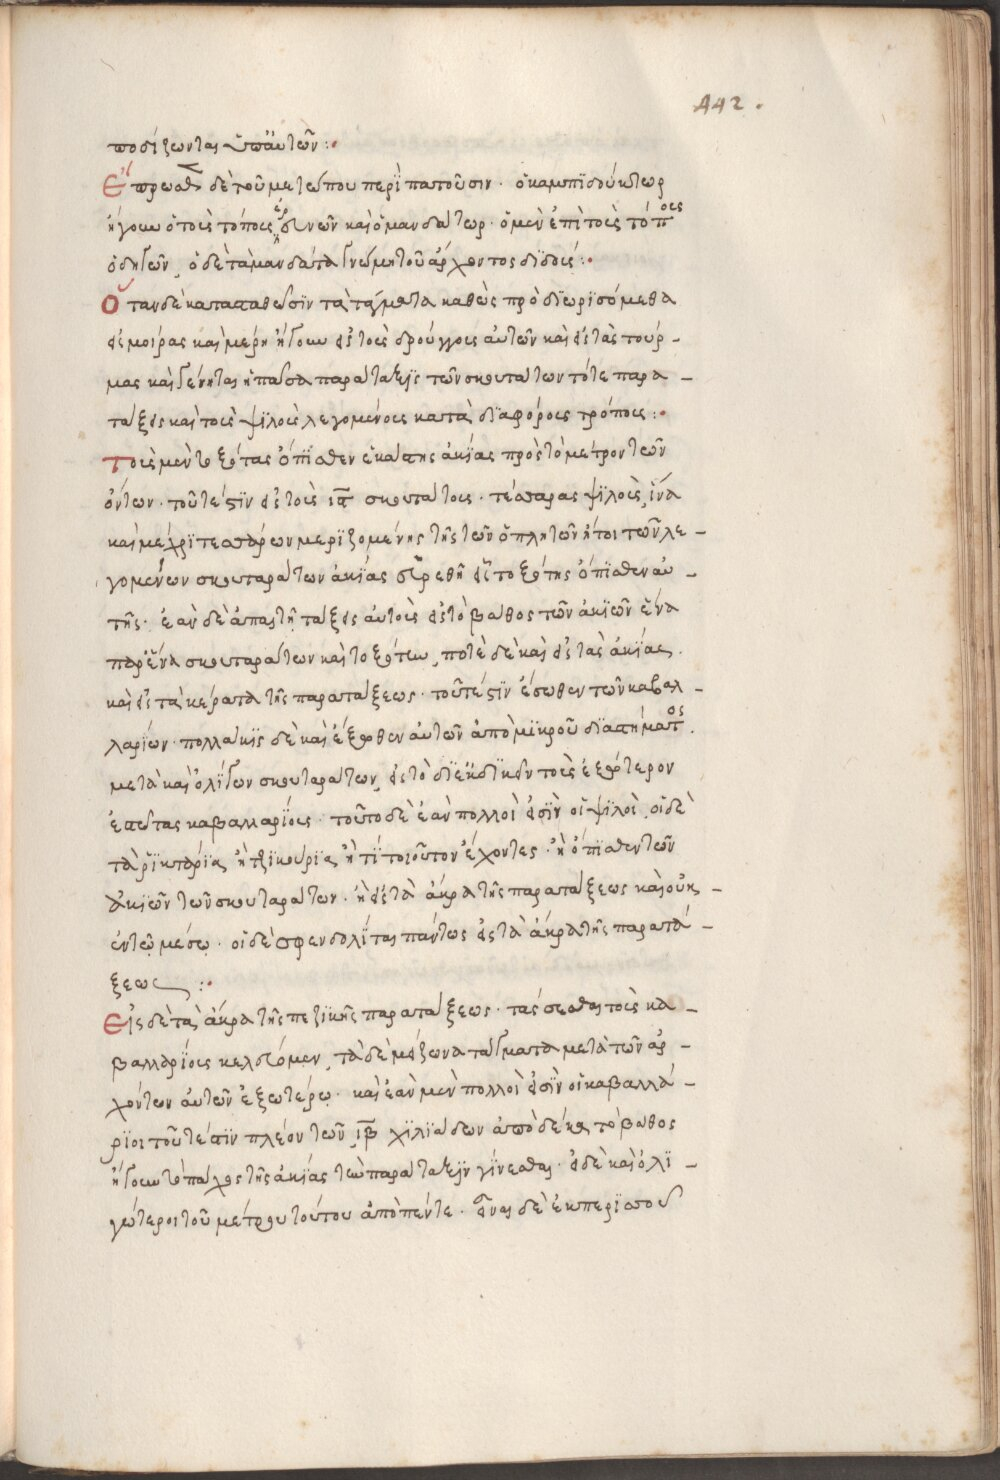 442.
ποσίζωνται ὑπ' αὐτῶν :·
Ἔμπροσθεν δὲ τοῦ μετώπου περιπατοῦσιν · ὁ καμπιδούκτωρ
ἤγουν ὁ τοὺς τόπους ἐρευνῶν καὶ ὁ μανδάτωρ · ὁ μὲν ἐπὶ τοὺς τόπους
ὁδηγῶν, ὁ δὲ τὰ μανδάτα γνώμῃ τοῦ ἄρχοντος διδούς :·
Ὅταν δὲ κατασταθῶσϊν τὰ τάγματα καθὼς προδϊωρϊσόμεθα
εἰς μοίρας καὶ μέρη ἤγουν εἰς τοὺς δρούγγους αὐτῶν καὶ εἰς τὰς τούρ-
μας καὶ γένηται ἡ πᾶσα παράταξϊς τῶν σκουτάτων τότε παρα-
τάξεις καὶ τοὺς ψϊλοὺς λεγομένους κατὰ δϊαφόρους τρόπους :·
Ποτὲ μὲν τοξότας ὄπϊσθεν ἑκάστης ἀκίας πρὸς τὸ μέτρον τῶν
ὄντων · τοῦτέστϊν εἰς τοὺς ις σκουτάτους · τέσσαρας ψϊλοὺς, ἵνα
καὶ μέχρϊ τεσσάρων μερϊζομένης τῆς τῶν ὁπλητῶν ἤτοι τῶν λε-
γομένων σκουταράτων ἀκίας εὑρεθῇ εἷς τοξότης ὄπϊσθεν αὐ-
τῆς · ἐὰν δὲ ἀπαιτῇ τάξεις αὐτοὺς εἰς τὸ βάθος τῶν ἀκϊῶν ἕνα
παρ' ἕνα σκουταράτων καὶ τοξότην, ποτὲ δὲ καὶ εἰς τὰς ἀκίας ·
καὶ εἰς τὰ κέρατα τῆς παρατάξεως · τοῦτέστϊν ἔσωθεν τῶν καβαλ-
λαρίων · πολλάκϊς δὲ καὶ ἔξωθεν αὐτῶν ἀπὸ μϊκροῦ δϊαστήματος ·
μετὰ καὶ ὀλίγων σκουταράτων, εἰς τὸ δϊεκδϊκεῖν τοὺς ἐξώτερον
ἑστῶτας καβαλλαρΐους · τοῦτο δὲ ἐὰν πολλοὶ εἰσϊν οἱ ψϊλοὶ, οἱ δὲ
τὰ ῥϊκτάρϊα ἢ τζϊκουρϊα ἢ τῒ τοιοῦτον ἔχοντες · ἢ ὄπϊσθεν τῶν
ἀκϊῶν τῶν σκουταράτων · ἢ εἰς τὰ ἄκρα τῆς παρατάξεως καὶ οὐκ -
ἐν τῷ μέσῳ · οἱ δὲ σφενδολῖται πάντως εἰς τὰ ἄκρα τῆς παρατά-
ξεως :·
Εἰς δὲ τὰ ἄκρα τῆς πεζϊκῆς παρατάξεως · τάσσεσθαι τοὺς κα-
βαλλαρΐους κελεύομεν, τὰ δὲ μείζωνα τάγματα μετὰ τῶν ἀρ-
χόντων αὐτῶν ἐξωτέρῳ · καὶ ἐὰν μὲν πολλοὶ εἰσϊν οἱ καβαλλά-
ρϊοι τοῦτέστϊν πλέον τῶν ,ιβ χϊλϊάδων ἀπὸ δέκα τὸ βάθος
ἤγουν τὸ πάχος τῆς ἀκίας τὴν παράταξϊν γΐνεσθαι · εἰ δὲ καὶ ὀλϊ-
γώτεροι τοῦ μέτρου τούτου ἀπὸ πέντε · εἶναι δὲ ἐκ περϊσσοῦ